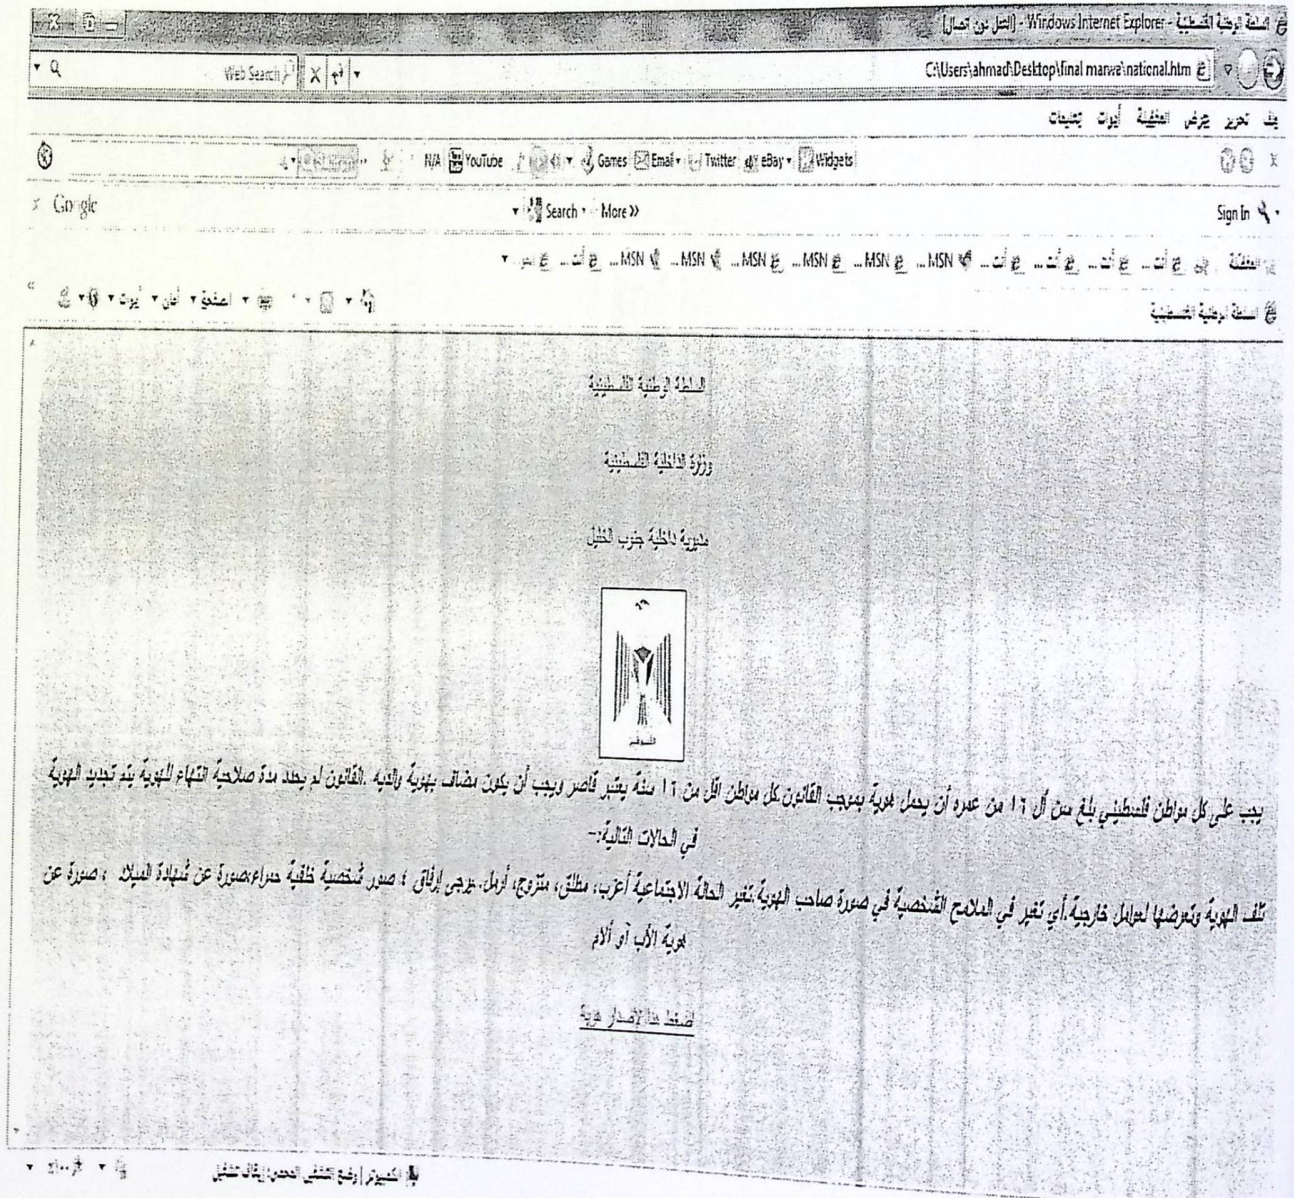 السلطة الوطنية الفلسطينية - Windows Internet Explorer - [العمل دون اتصال]
C:\Users\ahmad\Desktop\final marwa\national.htm
Web Search
ملف تحرير عرض المفضلة أدوات تعليمات
N/A YouTube Games Email Twitter eBay Widgets
Google Search More » Sign In
المفضلة MSN ... MSN ... MSN ... MSN ... MSN ... MSN ...
السلطة الوطنية الفلسطينية
الصفحة أمان أدوات
السلطة الوطنية الفلسطينية
وزارة الداخلية الفلسطينية
مديرية داخلية جنوب الخليل
فلسطين
يجب على كل مواطن فلسطيني بلغ سن أل ١٦ من عمره أن يحمل هوية بموجب القانون.كل مواطن اقل من ١٦ سنة يعتبر قاصر ويجب أن يكون مضاف بهوية والديه .القانون لم يحدد مدة صلاحية انتهاء للهوية يتم تجديد الهوية
في الحالات التالية:-
تلف الهوية وتعرضها لعوامل خارجية.أي تغير في الملامح الشخصية في صورة صاحب الهوية.تغير الحالة الاجتماعية أعزب، مطلق، متزوج، أرمل. يرجى إرفاق ٤ صور شخصية خلفية حمراء،صورة عن شهادة الميلاد ، صورة عن
هوية الأب أو ألام
اضغط هنا لإصدار هوية
الكمبيوتر | وضع التشغيل المحمي: إيقاف تشغيل